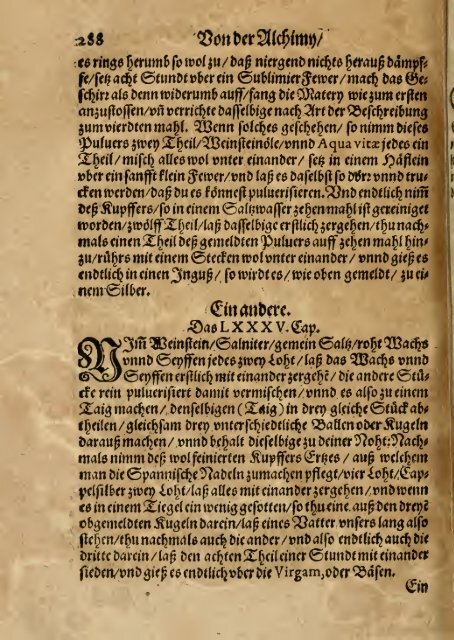 288 Von der Alchimy/
es rings herumb so wol zu/ daß niergend nichts herauß dämpf-
fe/ setz acht Stundt vber ein Sublimier Fewer/ mach das Ge-
schirz als denn widerumb auff/ fang die Matery wie zum ersten
anzustossen/ vñ verrichte dasselbige nach Art der Beschreibung
zum vierdten mahl. Wenn solches geschehen/ so nimm dieses
Puluers zwey Theil/ Weinsteinöle/ vnnd Aqua vitæ jedes ein
Theil/ misch alles wol vnter einander/ setz in einem Häflein
vber ein sanfft klein Fewer/ vnd laß es daselbst so vnnd tru-
cken werden/ daß du es könnest puluerisieren. Vnd endtlich nim̃
deß Kupffers/ so in einem Saltzwasser zehen mahl ist gereiniget
worden/ zwölff Theil/ laß dasselbige erstlich zergehen/ thu nach-
mals einen Theil deß gemeldten Puluers auff zehen mahl hin-
zu/ rührs mit einem Stecken wol vnter einander/ vnnd gieß es
endtlich in einen Inguß/ so wirdt es/ wie oben gemeldt/ zu ei-
nem Silber.
Ein andere.
Das LXXXV. Cap.
NIm̃ Weinstein/ Salniter/ gemein Saltz/ roht Wachs
vnnd Seyffen jedes zwey Loht/ laß das Wachs vnnd
Seyffen erstlich mit einander zergehē/ die andere Stü-
cke rein puluerisiert damit vermischen/ vnnd es also zu einem
Taig machen/ denselbigen (Taig) in drey gleiche Stück ab-
theilen/ gleichsam drey vnterschiedliche Ballen oder Kugeln
darauß machen/ vnnd behalt dieselbige zu deiner Noht: Nach-
mals nimm deß wol feinierten Kupffers Ertzes/ auß welchem
man die Spannische Nadeln zumachen pflegt/ vier Loht/ Cap-
pelsilber zwey Loht/ laß alles mit einander zergehen/ vnd wenn
es in einem Tiegel ein wenig gesotten/ so thu eine auß den dreyē
obgemeldten Kugeln darein/ laß eines Vatter vnsers lang also
stehen/ thu nachmals auch die ander/ vnd also endtlich auch die
dritte darein/ laß den achten Theil einer Stundt mit einander
sieden/ vnd gieß es endtlich vber die Virgam, oder Bäsen.
Ein